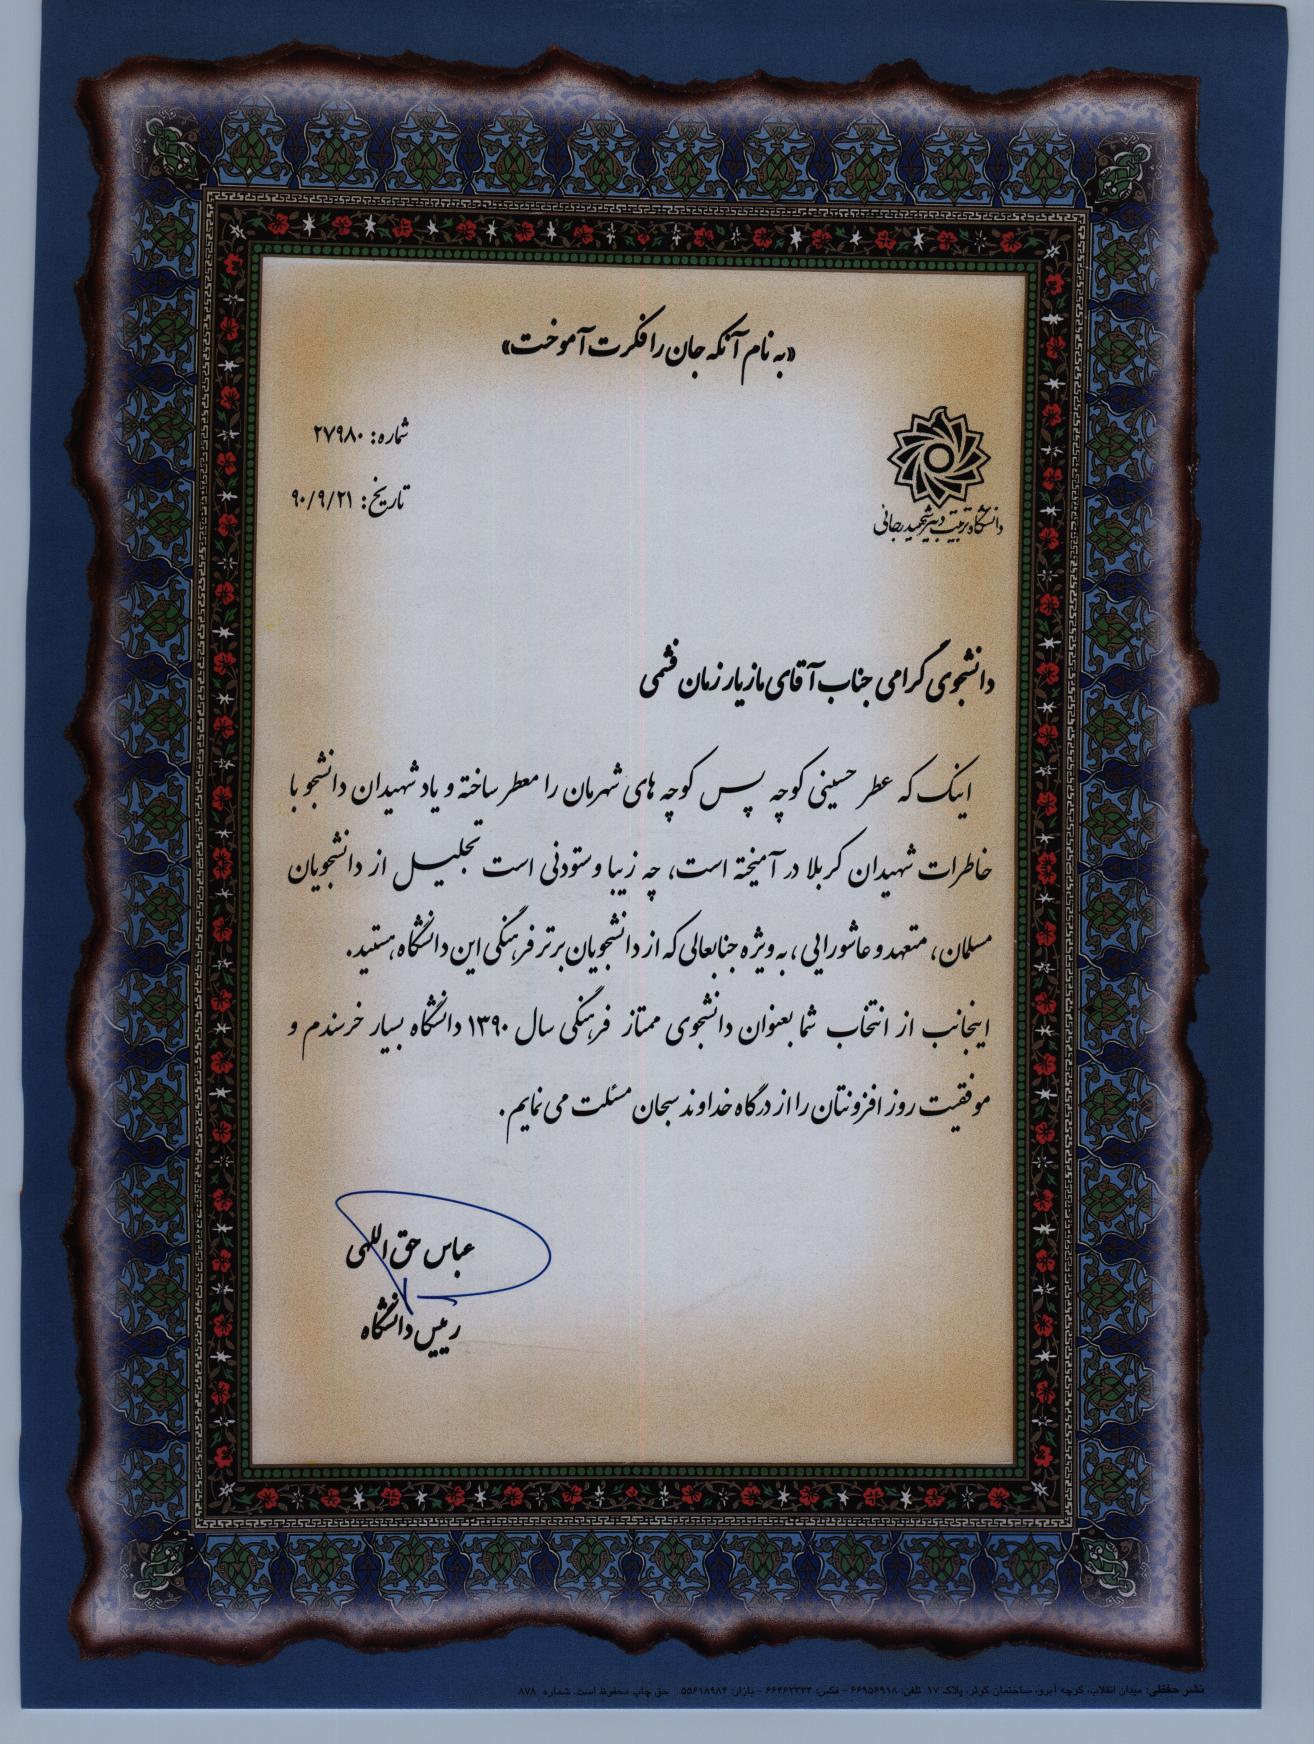 «به نام آنکه جان را فکرت آموخت»
شماره: ۲۷۹۸۰
تاریخ: ۹۰/۹/۲۱
دانشگاه تربیت دبیر شهید رجائی
دانشجوی گرامی جناب آقای مازیار زمان فشمی
اینک که عطر حسینی کوچه پس کوچه های شهرمان را معطر ساخته و یاد شهیدان دانشجو با
خاطرات شهیدان کربلا در آمیخته است، چه زیبا و ستودنی است تجلیل از دانشجویان
مسلمان، متعهد و عاشورایی، به ویژه جنابعالی که از دانشجویان برتر فرهنگی این دانشگاه هستید.
اینجانب از انتخاب شما بعنوان دانشجوی ممتاز فرهنگی سال ۱۳۹۰ دانشگاه بسیار خرسندم و
موفقیت روز افزونتان را از درگاه خداوند سبحان مسئلت می نمایم.
عباس حق اللهی
رییس دانشگاه
نشر حفظی: میدان انقلاب، کوچه آبرو، ساختمان کوثر، پلاک ۱۷ تلفن: ۶۶۹۵۶۹۱۸ - فکس: ۶۶۴۶۲۲۲۲ - بازار: ۵۵۶۱۸۹۸۴ حق چاپ محفوظ است. شماره ۸۷۸